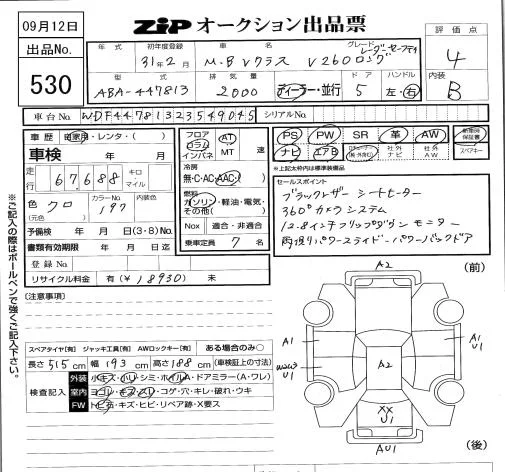 09月12日
ZIP オークション出品票
評価点
4
出品No.
530
年式 初年度登録 車名 グレード
31年2月 M・B Vクラス V260ロング レーダーセーフティ
型式 排気量 ドア ハンドル
ABA-447813 2000 ディーラー・並行 5 左・右
内装
B
車台No. WDF44781323549045 シリアルNo.
車歴 自家用・レンタ・( )
車検 年 月
走行 67,688 キロ マイル
色 クロ カラーNo. 197 内装色
(元色)
予備検 年 月 日(3・8)
書類有効期限 年 月 日迄
登録No.
リサイクル料金 有(¥18930) 未
フロア コラム インパネ
AT MT 速
冷房
無・C・AC・AAC
燃料
ガソリン・軽油・電気・その他( )
Nox 適合・非適合
乗車定員 7 名
PS PW SR 革 AW 新車時保証書
ナビ エアB 社外ナビ 社外AW スペアキー
※上記太枠内は標準装備品
セールスポイント
ブラックレザー シートヒーター
360°カメラシステム
12.8インチフリップダウンモニター
両側パワースライドドア パワーバックドア
※ご記入の際はボールペンで強くご記入下さい。
[注意事項]
スペアタイヤ[有] ジャッキ工具[有] AWロックキー[有] ある場合のみ○
長さ 515 cm 幅 193 cm 高さ 188 cm (車検証上の寸法)
検査記入
外装 小キズ・小ヘコ・シミ・ホイルA・ドアミラー(A・ワレ)
室内 ヨゴレ・キズ・スレ・コゲ・穴・キレ・破れ・ウキ
FW トビ石・キズ・ヒビ・リペア跡・X要ス
(前)
A2
A1
A1
U1
U1
A2
XX
U1
AU1
(後)